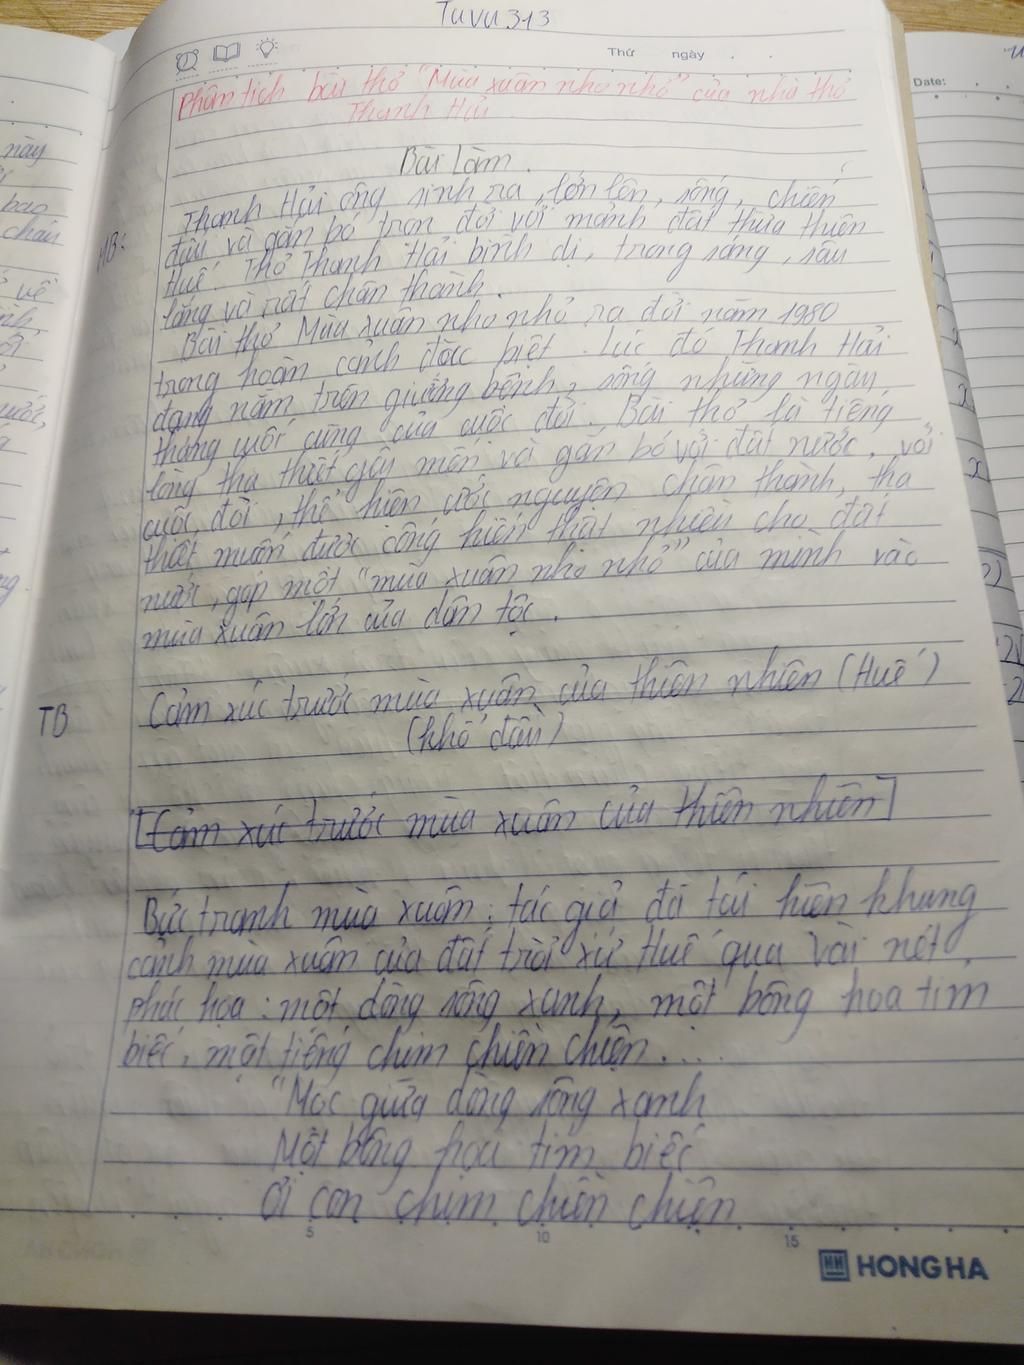 Tuvu313
Thứ ngày
Date:
Phân tích bài thơ "Mùa xuân nho nhỏ" của nhà thơ
Thanh Hải
Bài Làm.
MB:
Thanh Hải ông sinh ra, lớn lên, sống, chiến
đấu và gắn bó trọn đời với mảnh đất Thừa Thiên
Huế. Thơ Thanh Hải bình dị, trong sáng, sâu
lắng và rất chân thành.
Bài thơ Mùa xuân nho nhỏ ra đời năm 1980
trong hoàn cảnh đặc biệt. Lúc đó Thanh Hải
đang nằm trên giường bệnh, sống những ngày
tháng cuối cùng của cuộc đời. Bài thơ là tiếng
lòng tha thiết yêu mến và gắn bó với đất nước, với
cuộc đời, thể hiện ước nguyện chân thành, tha
thiết muốn được cống hiến thật nhiều cho đất
nước, góp một "mùa xuân nho nhỏ" của mình vào
mùa xuân lớn của dân tộc.
TB
Cảm xúc trước mùa xuân của thiên nhiên (Huế)
(khổ đầu)
Cảm xúc trước mùa xuân của thiên nhiên
Bức tranh mùa xuân: tác giả đã tái hiện khung
cảnh mùa xuân của đất trời xứ Huế qua vài nét
phác họa: một dòng sông xanh, một bông hoa tím
biếc, một tiếng chim chiền chiện....
"Mọc giữa dòng sông xanh
Một bông hoa tím biếc
Ơi con chim chiền chiện
5 10 15
HONG HA